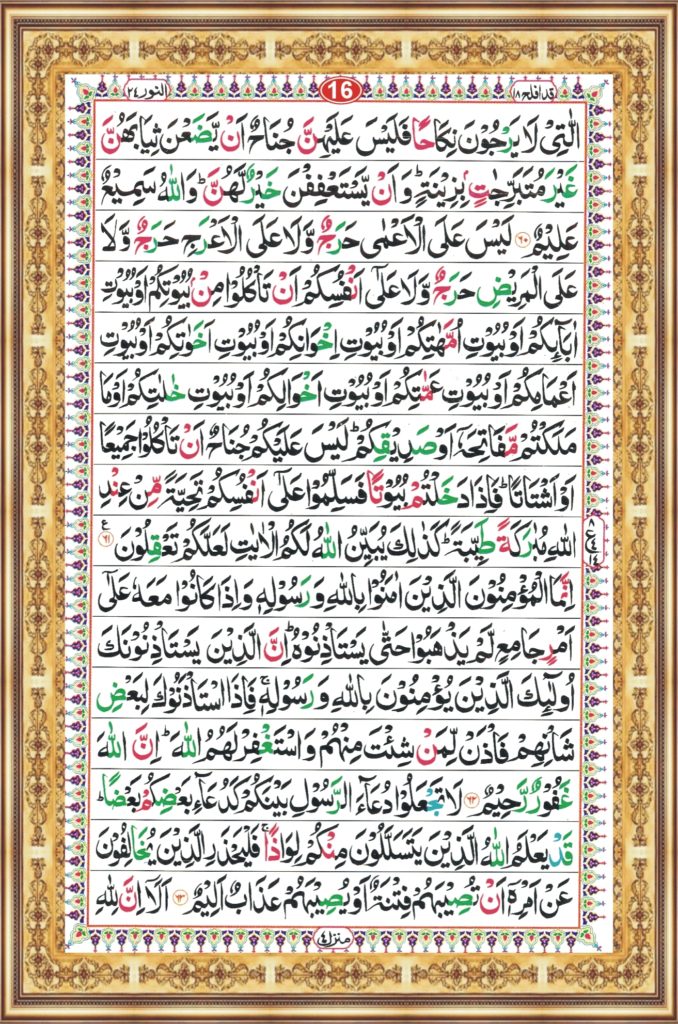 قد افلح ١٨
16
النور ٢٤
الّٰتِیْ لَا یَرْجُوْنَ نِكَاحًا فَلَیْسَ عَلَیْهِنَّ جُنَاحٌ اَنْ یَّضَعْنَ ثِیَابَهُنَّ
غَیْرَ مُتَبَرِّجٰتٍۭ بِزِیْنَةٍؕ وَ اَنْ یَّسْتَعْفِفْنَ خَیْرٌ لَّهُنَّؕ وَ اللّٰهُ سَمِیْعٌ
عَلِیْمٌ ۶۰ لَیْسَ عَلَى الْاَعْمٰى حَرَجٌ وَّ لَا عَلَى الْاَعْرَجِ حَرَجٌ وَّ لَا
عَلَى الْمَرِیْضِ حَرَجٌ وَّ لَا عَلٰۤى اَنْفُسِكُمْ اَنْ تَاْكُلُوْا مِنْۢ بُیُوْتِكُمْ اَوْ بُیُوْتِ
اٰبَآىِٕكُمْ اَوْ بُیُوْتِ اُمَّهٰتِكُمْ اَوْ بُیُوْتِ اِخْوَانِكُمْ اَوْ بُیُوْتِ اَخَوٰتِكُمْ اَوْ بُیُوْتِ
اَعْمَامِكُمْ اَوْ بُیُوْتِ عَمّٰتِكُمْ اَوْ بُیُوْتِ اَخْوَالِكُمْ اَوْ بُیُوْتِ خٰلٰتِكُمْ اَوْ مَا
مَلَكْتُمْ مَّفَاتِحَهٗۤ اَوْ صَدِیْقِكُمْؕ لَیْسَ عَلَیْكُمْ جُنَاحٌ اَنْ تَاْكُلُوْا جَمِیْعًا
اَوْ اَشْتَاتًاؕ فَاِذَا دَخَلْتُمْ بُیُوْتًا فَسَلِّمُوْا عَلٰۤى اَنْفُسِكُمْ تَحِیَّةً مِّنْ عِنْدِ
اللّٰهِ مُبٰرَكَةً طَیِّبَةًؕ كَذٰلِكَ یُبَیِّنُ اللّٰهُ لَكُمُ الْاٰیٰتِ لَعَلَّكُمْ تَعْقِلُوْنَ ۶۱ ع
٨ ع ١٤
اِنَّمَا الْمُؤْمِنُوْنَ الَّذِیْنَ اٰمَنُوْا بِاللّٰهِ وَ رَسُوْلِهٖ وَ اِذَا كَانُوْا مَعَهٗ عَلٰۤى
اَمْرٍ جَامِعٍ لَّمْ یَذْهَبُوْا حَتّٰى یَسْتَاْذِنُوْهُؕ اِنَّ الَّذِیْنَ یَسْتَاْذِنُوْنَكَ
اُولٰٓىِٕكَ الَّذِیْنَ یُؤْمِنُوْنَ بِاللّٰهِ وَ رَسُوْلِهٖۚ فَاِذَا اسْتَاْذَنُوْكَ لِبَعْضِ
شَاْنِهِمْ فَاْذَنْ لِّمَنْ شِئْتَ مِنْهُمْ وَ اسْتَغْفِرْ لَهُمُ اللّٰهَؕ اِنَّ اللّٰهَ
غَفُوْرٌ رَّحِیْمٌ ۶۲ لَا تَجْعَلُوْا دُعَآءَ الرَّسُوْلِ بَیْنَكُمْ كَدُعَآءِ بَعْضِكُمْ بَعْضًاؕ
قَدْ یَعْلَمُ اللّٰهُ الَّذِیْنَ یَتَسَلَّلُوْنَ مِنْكُمْ لِوَاذًاۚ فَلْیَحْذَرِ الَّذِیْنَ یُخَالِفُوْنَ
عَنْ اَمْرِهٖۤ اَنْ تُصِیْبَهُمْ فِتْنَةٌ اَوْ یُصِیْبَهُمْ عَذَابٌ اَلِیْمٌ ۶۳ اَلَاۤ اِنَّ لِلّٰهِ
منزل ٤